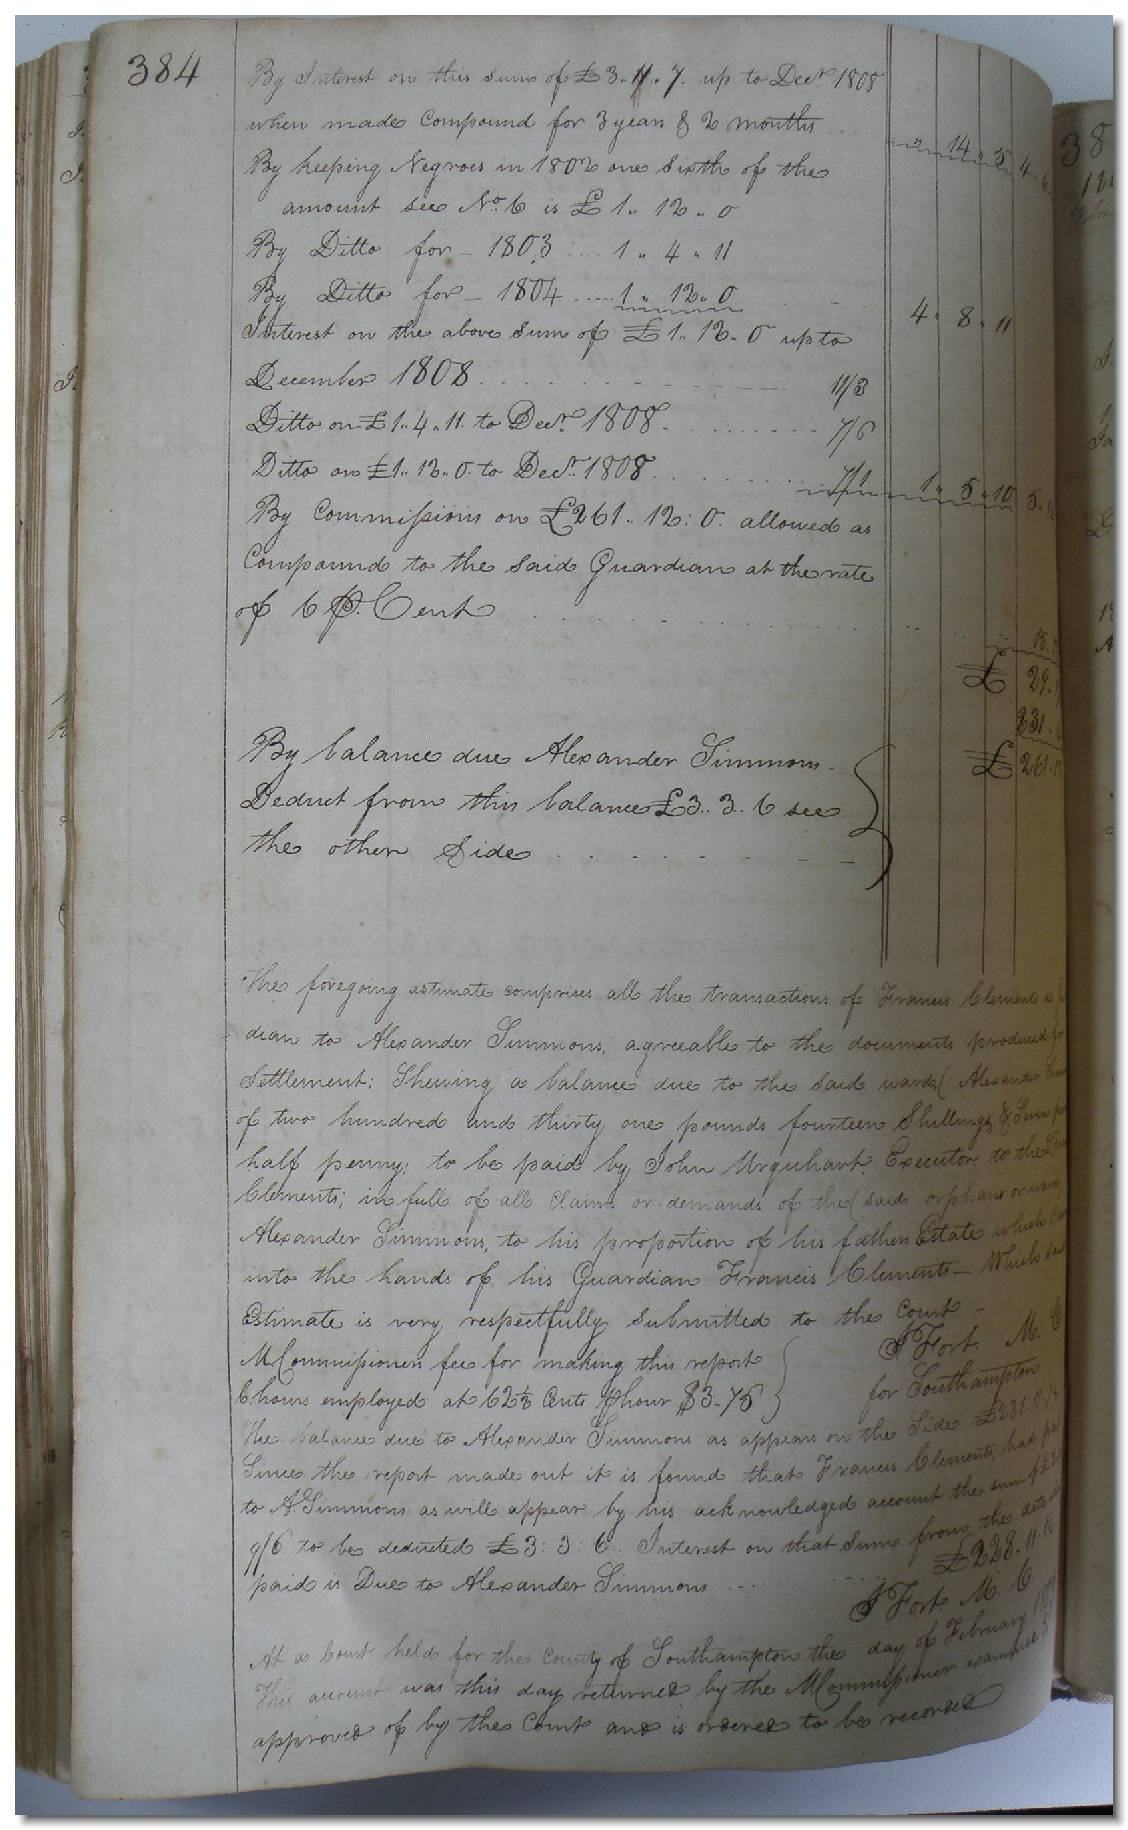 384
By Interest on this sum of £3..11..7. up to Decr. 1808
when made Compound for 3 years & 2 months .... " 14 " 5 4
By keeping Negroes in 1802 one Sixth of the
amount see No. 6 is £ 1.. 12 .. 0
By Ditto for - 1803 .... 1 .. 4 .. 11
By Ditto for - 1804 ..... 1 .. 12 .. 0 4 . 8 . 11
Interest on the above Sum of £1..12..0 up to
December 1808 ............ 11/3
Ditto on £1..4..11. to Decr. 1808. ........ 7/6
Ditto on £1..12..0. to Decr. 1808. ....... 7/1 1 .. 5 .. 10 5
By Commissions on £261..12:0. allowed as
Compound to the said Guardian at the rate
of 6 P. Cent
£ 29
231
By balance due Alexander Simmons - £ 261
Deduct from this balance £3..3..6 see
the other Side
The foregoing estimate comprises all the transactions of Francis Clements as
dian to Alexander Simmons, agreeable to the documents produced
Settlement: Shewing a balance due to the said ward, (Alexander
of two hundred and thirty one pounds fourteen Shillings & Seven
half penny; to be paid by John Urquhart. Executor to the
Clements; in full of all Claims or demands of the (said orphan or ward,
Alexander Simmons, to his proportion of his fathers Estate which
into the hands of his Guardian Francis Clements - Which said
Estimate is very respectfully Submitted to the Court -
J Fort. M. C
MCommissioners fee for making this report
for Southampton
6 hours employed at 62½ Cents P hour $3.75
The balance due to Alexander Simmons as appears on the Side £231
Since the report made out it is found that Francis Clements had
to A. Simmons as will appear by his acknowledged account the sum of £
9/6 to be deducted £3:3:6. Interest on that Sum from the date
paid is Due to Alexander Simmons ... £228.11
J Fort. M. C
At a Court held for the County of Southampton the day of February
This account was this day returned by the MCommissioner examined
approved of by the Court and is ordered to be recorded